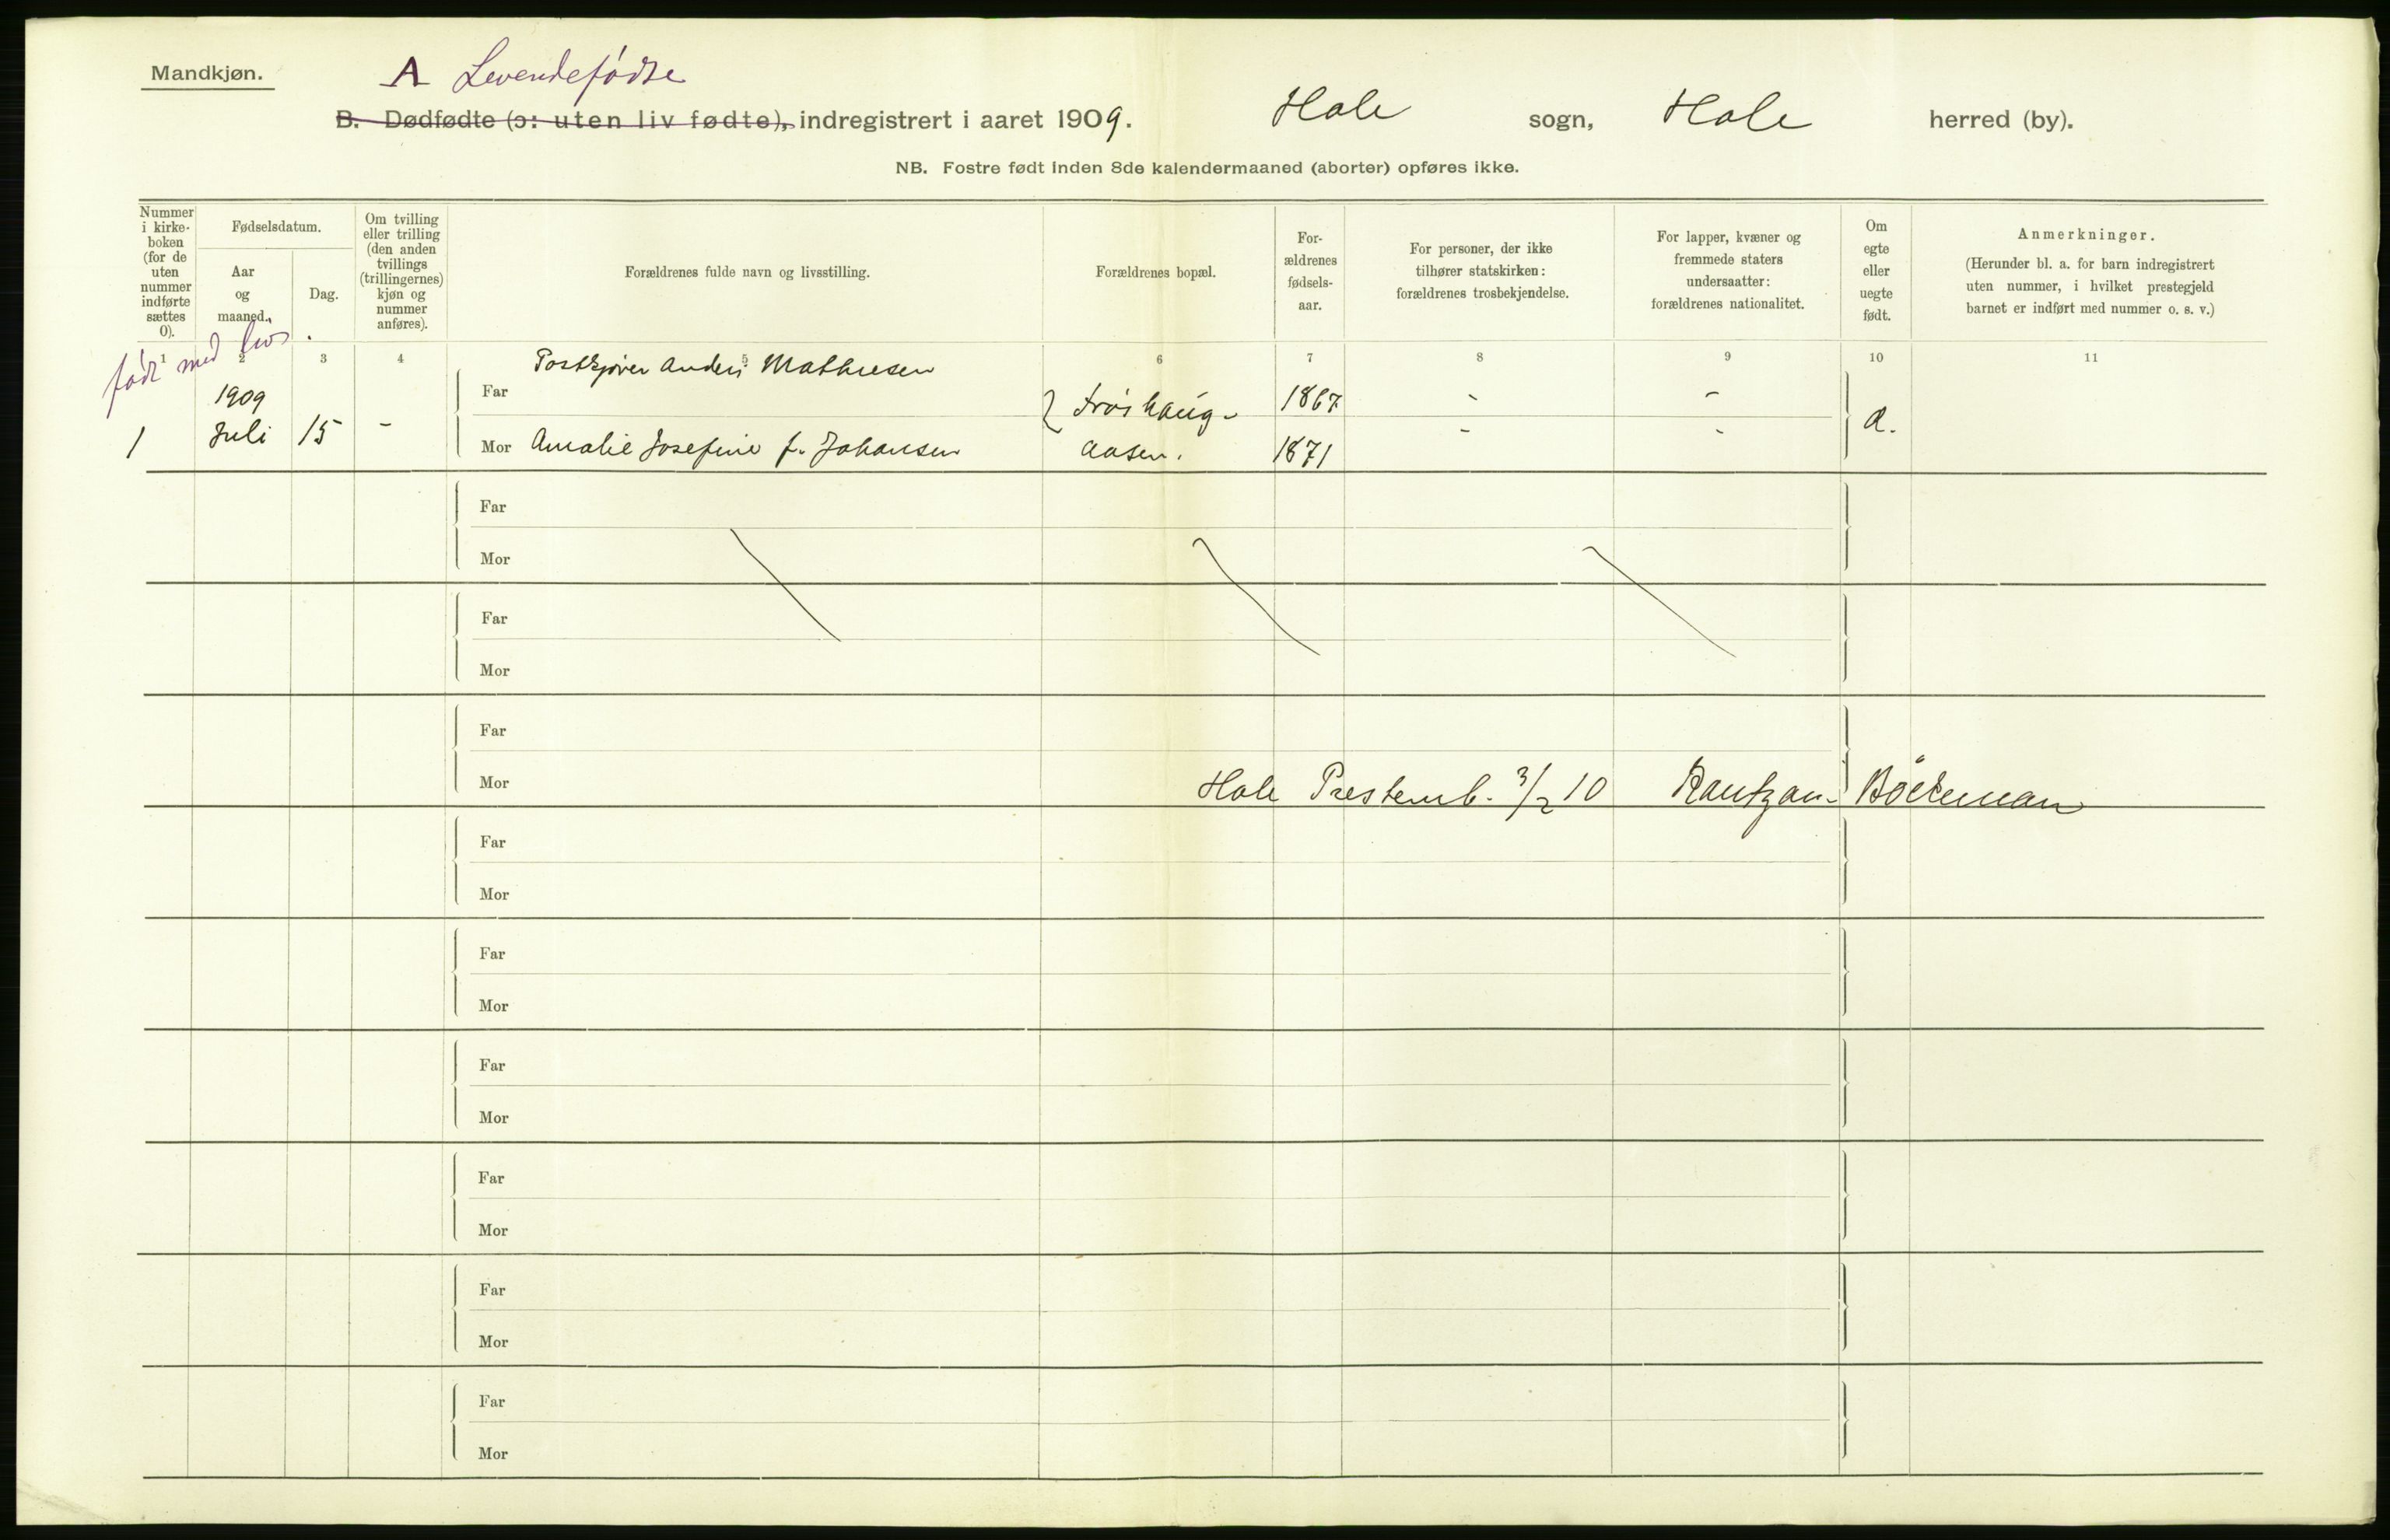 Mandkjøn.
A Levendefødte
B. Dødfødte (ɔ: uten liv fødte), indregistrert i aaret 1909. Hole sogn, Hole herred (by).
NB. Fostre født inden 8de kalendermaaned (aborter) opføres ikke.
Nummer
i kirke-
boken
(for de
uten
nummer
indførte
sættes
0).
Fødselsdatum.
Aar
og
maaned.
Dag.
Om tvilling
eller trilling
(den anden
tvillings
(trillingernes)
kjøn og
nummer
anføres).
Forældrenes fulde navn og livsstilling.
Forældrenes bopæl.
For-
ældrenes
fødsels-
aar.
For personer, der ikke
tilhører statskirken:
forældrenes trosbekjendelse.
For lapper, kvæner og
fremmede staters
undersaatter:
forældrenes nationalitet.
Om
egte
eller
uegte
født.
Anmerkninger.
(Herunder bl. a. for barn indregistrert
uten nummer, i hvilket prestegjeld
barnet er indført med nummer o. s. v.)
1 2 3 4 5 6 7 8 9 10 11
født med livs.
Postkjører Anders Mathiesen
1909 Far Frøshaug- 1867 - -
1 Juli 15 - Mor Amalie Josefine f. Johansen Aasen. 1871 - -
Far
Mor
Far
Mor
Far
Mor Hole Prestemb. 3/2 10 Rantzau- Böckman
Far
Mor
Far
Mor
Far
Mor
Far
Mor
Far
Mor
Far
Mor